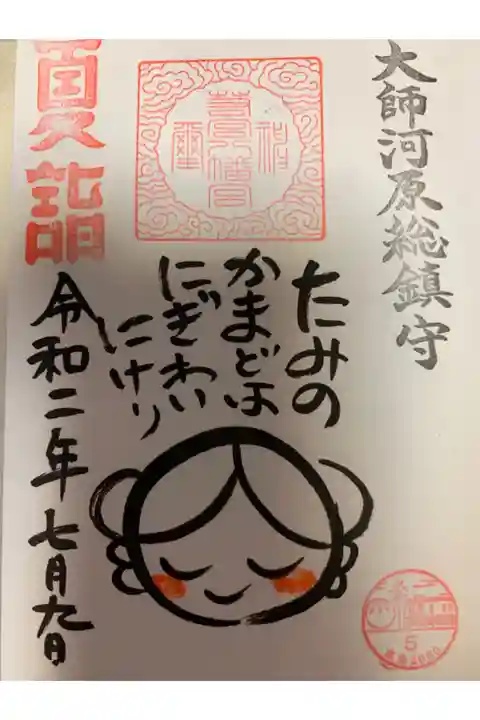 大師河原総鎮守
夏詣
たみの
かまどは
にぎわい
にけり
令和二年七月九日
5